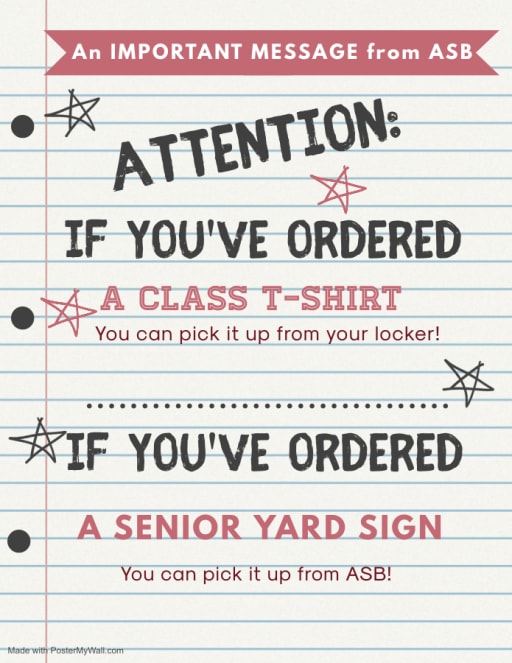 An IMPORTANT MESSAGE from ASB
ATTENTION:
IF YOU'VE ORDERED
A CLASS T-SHIRT
You can pick it up from your locker!
IF YOU'VE ORDERED
A SENIOR YARD SIGN
You can pick it up from ASB!
Made with PosterMyWall.com